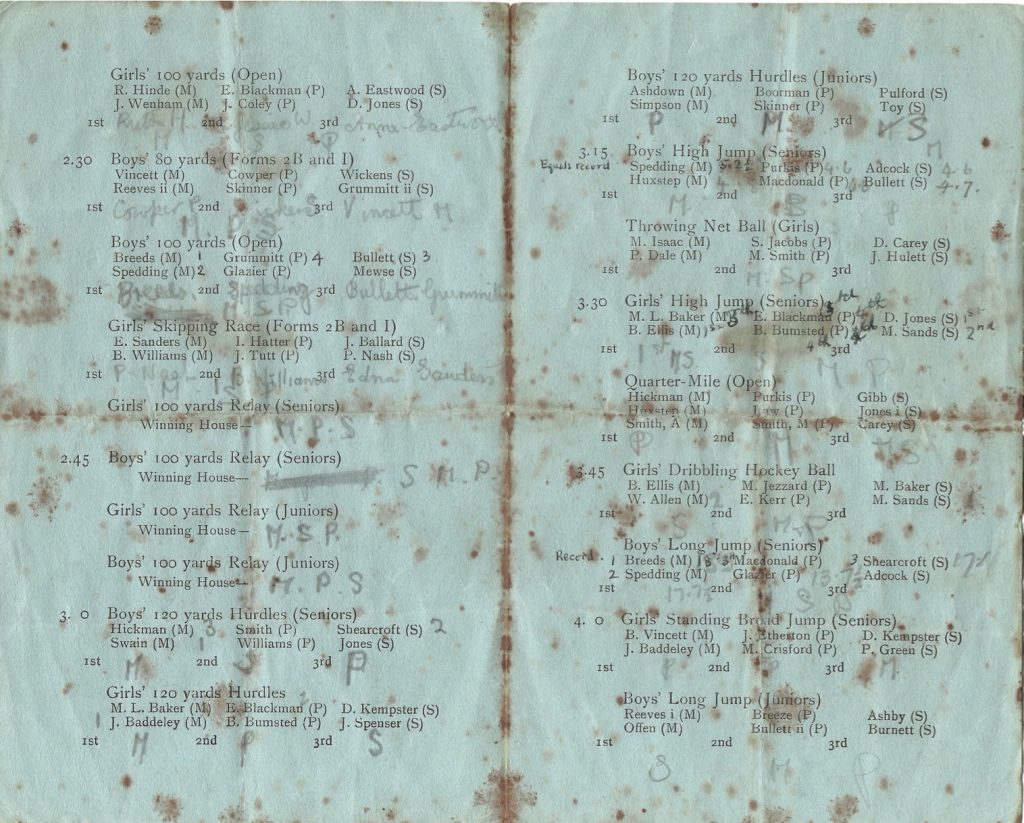 Girls' 100 yards (Open)
R. Hinde (M) E. Blackman (P) A. Eastwood (S)
J. Wenham (M) J. Coley (P) D. Jones (S)
1st 2nd 3rd
M S P
2.30 Boys' 80 yards (Forms 2B and I)
Vincett (M) Cowper (P) Wickens (S)
Reeves ii (M) Skinner (P) Grummitt ii (S)
1st Cowper P 2nd 3rd Vincett M
M. P. S
Boys' 100 yards (Open)
Breeds (M) 1 Grummitt (P) 4 Bullett (S) 3
Spedding (M) 2 Glazier (P) Mewse (S)
1st Breeds 2nd Spedding 3rd Bullett Grummitt
M. S. P
Girls' Skipping Race (Forms 2B and I)
E. Sanders (M) I. Hatter (P) J. Ballard (S)
B. Williams (M) J. Tutt (P) P. Nash (S)
1st P. Nash 2nd B. Williams 3rd Edna Saunders
M
Girls' 100 yards Relay (Seniors)
Winning House— M. P. S
2.45 Boys' 100 yards Relay (Seniors)
Winning House— S M. P.
Girls' 100 yards Relay (Juniors)
Winning House— M. S P.
Boys' 100 yards Relay (Juniors)
Winning House— M. P S
3. 0 Boys' 120 yards Hurdles (Seniors)
Hickman (M) 3 Smith (P) Shearcroft (S) 2
Swain (M) 1 Williams (P) Jones (S)
1st 2nd 3rd
M S P
Girls' 120 yards Hurdles
M. L. Baker (M) E. Blackman (P) D. Kempster (S)
1 J. Baddeley (M) B. Bumsted (P) J. Spenser (S)
1st 2nd 3rd
M P S
Boys' 120 yards Hurdles (Juniors)
Ashdown (M) Boorman (P) Pulford (S)
Simpson (M) Skinner (P) Toy (S)
1st P 2nd M 3rd S
3.15 Boys' High Jump (Seniors) M
Equals record Spedding (M) Purkis (P) 4.6 Adcock (S) 4.6
Huxstep (M) Macdonald (P) Bullett (S) 4.7.
1st 2nd 3rd
M. S P
Throwing Net Ball (Girls)
M. Isaac (M) S. Jacobs (P) D. Carey (S)
P. Dale (M) M. Smith (P) J. Hulett (S)
1st 2nd 3rd
M. S P
3.30 Girls' High Jump (Seniors)
M. L. Baker (M) 3rd E. Blackman (P) 4th D. Jones (S) 1st
B. Ellis (M) B. Bumsted (P) M. Sands (S) 2nd
1st 2nd 4th 3rd
1st MS S M P
Quarter-Mile (Open)
Hickman (M) Purkis (P) Gibb (S)
Huxstep (M) Law (P) Jones i (S)
Smith, A (M) Smith, M (P) Carey (S)
1st 2nd 3rd
P M S
3.45 Girls' Dribbling Hockey Ball
B. Ellis (M) M. Jezzard (P) M. Baker (S)
W. Allen (M) 2 E. Kerr (P) M. Sands (S) 1
1st 2nd 3rd
S M P
Boys' Long Jump (Seniors)
Record. 1 Breeds (M) Macdonald (P) 3 Shearcroft (S)
2 Spedding (M) Glazier (P) Adcock (S)
1st 2nd 3rd
4. 0 Girls' Standing Broad Jump (Seniors)
B. Vincett (M) J. Etherton (P) D. Kempster (S)
J. Baddeley (M) M. Crisford (P) P. Green (S)
1st 2nd 3rd
P S M
Boys' Long Jump (Juniors)
Reeves i (M) Breeze (P) Ashby (S)
Offen (M) Bullett ii (P) Burnett (S)
1st 2nd 3rd
S M P